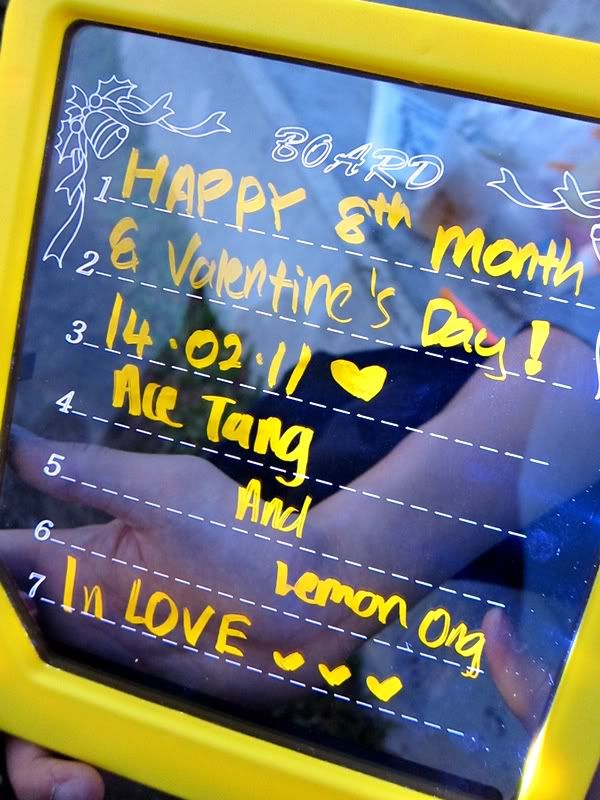 BOARD
1 HAPPY 8th month
2 & Valentine's Day!
3 14.02.11
4 Ace Tang
5 And
6 Lemon Ong
7 In LOVE